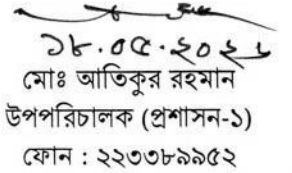 ১৮.০৫.২০২৬
মোঃ আতিকুর রহমান
উপপরিচালক (প্রশাসন-১)
ফোন : ২২৩৩৮৯৯৫২